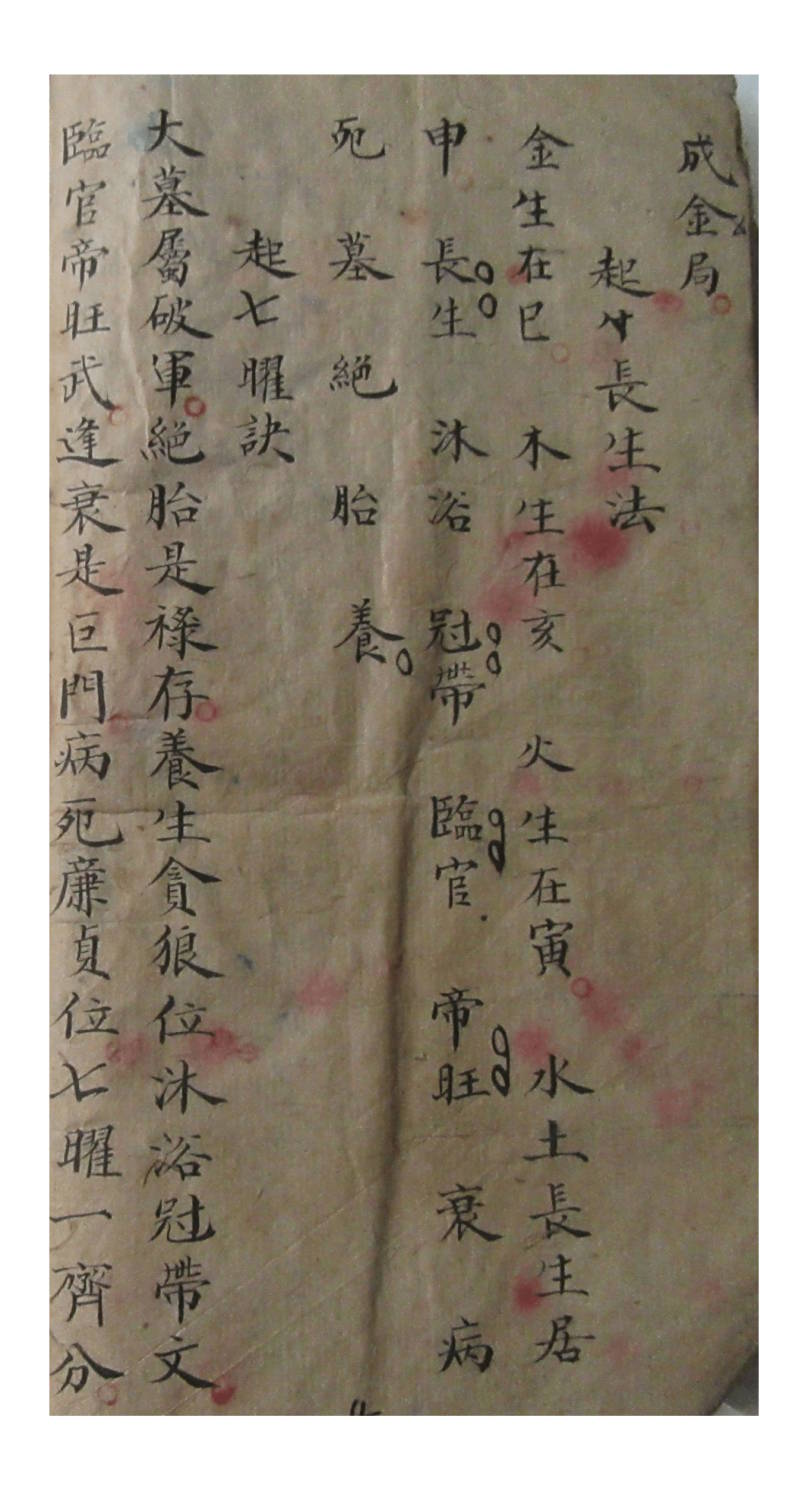 成金局
起寸長生法
金生在巳 木生在亥 火生在寅 水土長生居
申 長生 沐浴 冠帶 臨官 帝旺 衰 病
死 墓 絕 胎 養
起七曜訣
大墓屬破軍絕胎是祿存養生貪狼位沐浴冠帶文
臨官帝旺武逢衰是巨門病死廉貞位七曜一齊分